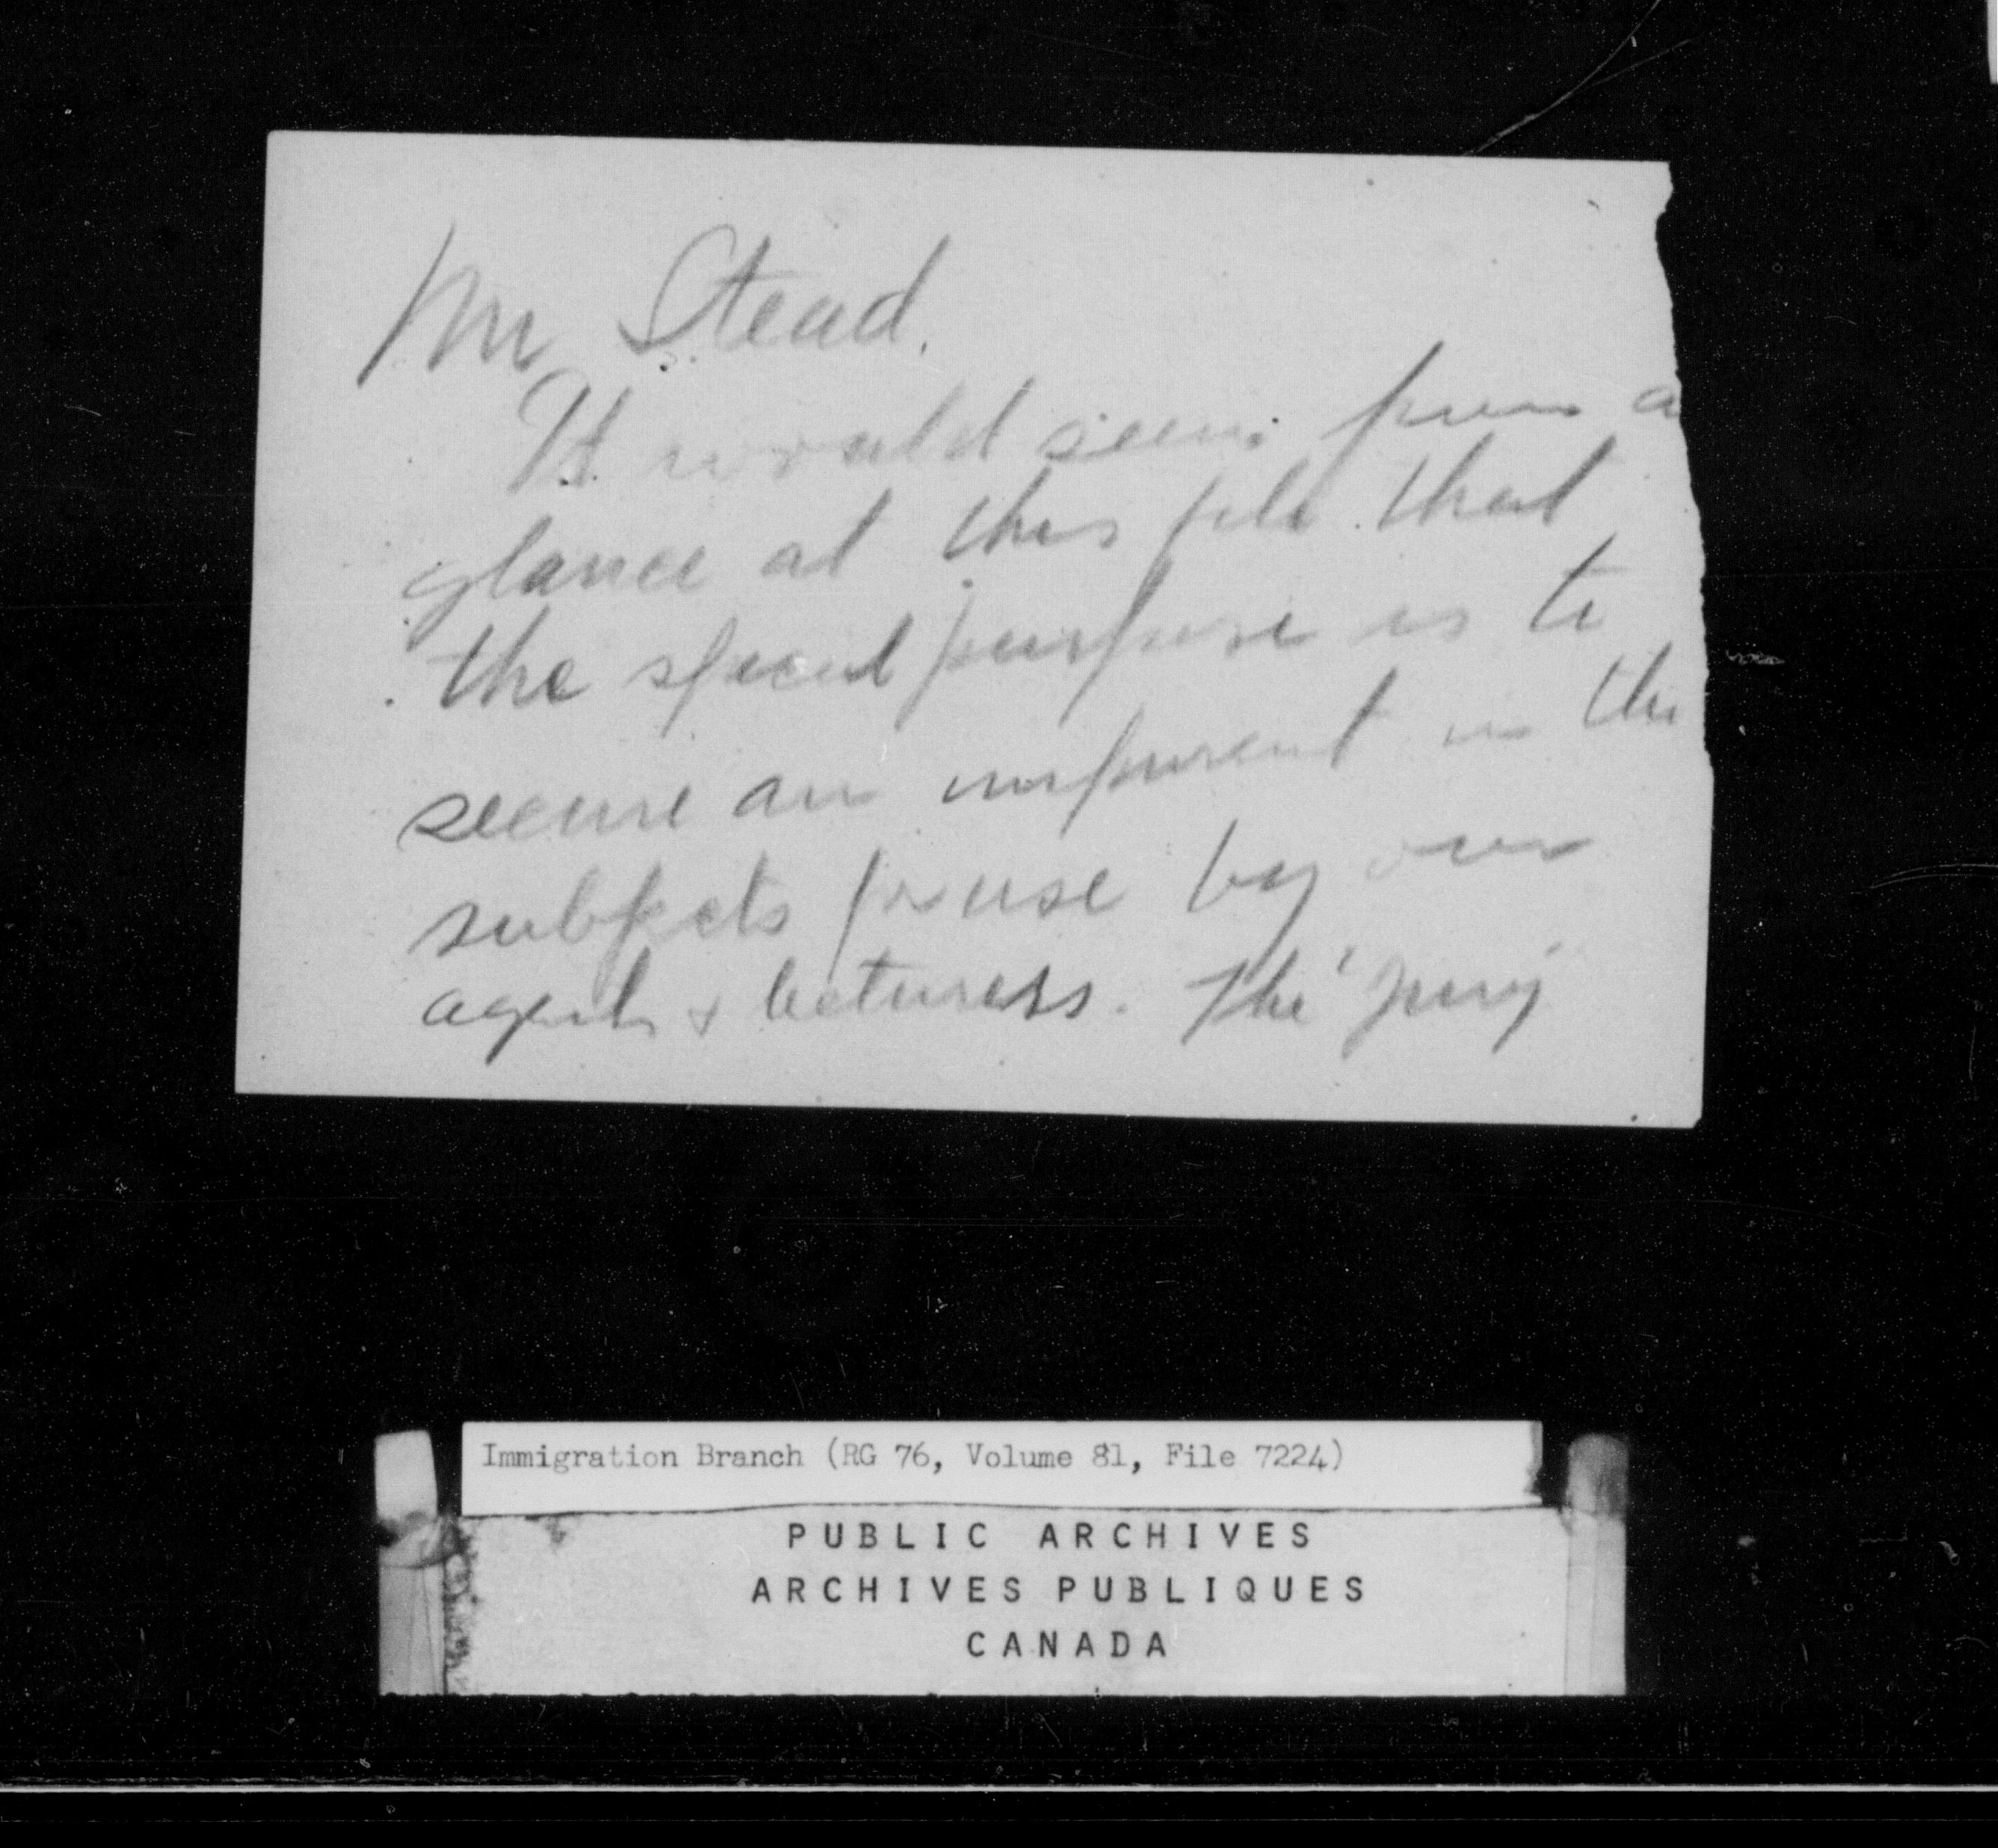 Mr Stead.
It would seem from a
glance at this file that
the special purpose is to
secure an in the
subjects for use by our
agents & lecturers. The
Immigration Branch (RG 76, Volume 81, File 7224)
PUBLIC ARCHIVES
ARCHIVES PUBLIQUES
CANADA